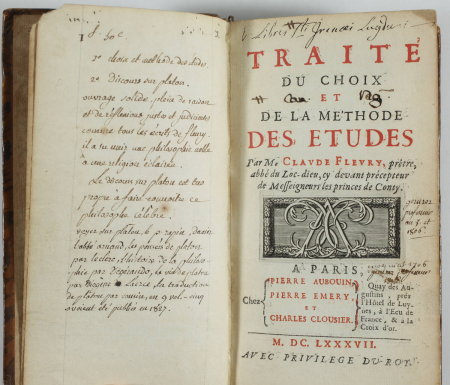 2° choix et methode des études
2° Discours sur platon.
ouvrage solide, plein de raison
et de réflexions justes et judicieuses
comme tous les écrits de fleury.
il a su unir une philosophie noble
à une religion éclairée.
Le discours sur platon est très
propre à faire connaitre ce
philosophe célèbre.
voyez sur platon, le p. rapin, dacier
l'abbé arnaud, les pensées de platon
par leclerc, l'histoire de la philoso-
phie par Degerando, la vie de platon
par Diogène Laerce, la traduction
de platon par cousin, en 9 vol.
avoient été publiés en 1827.
Libris
TRAITÉ
DU CHOIX
ET
DE LA METHODE
DES ETUDES
Par Me CLAUDE FLEURY, prêtre,
abbé du Loc-dieu, cy devant précepteur
de Messeigneurs les princes de Conty.
A PARIS,
Chez
PIERRE AUBOUIN,
PIERRE EMERY,
ET
CHARLES CLOUSIER,
Quay des Au-
gustins, près
l'Hôtel de Luy-
nes, à l'Ecu de
France, & à la
Croix d'or.
M. DC. LXXXVII.
AVEC PRIVILEGE DU ROY.